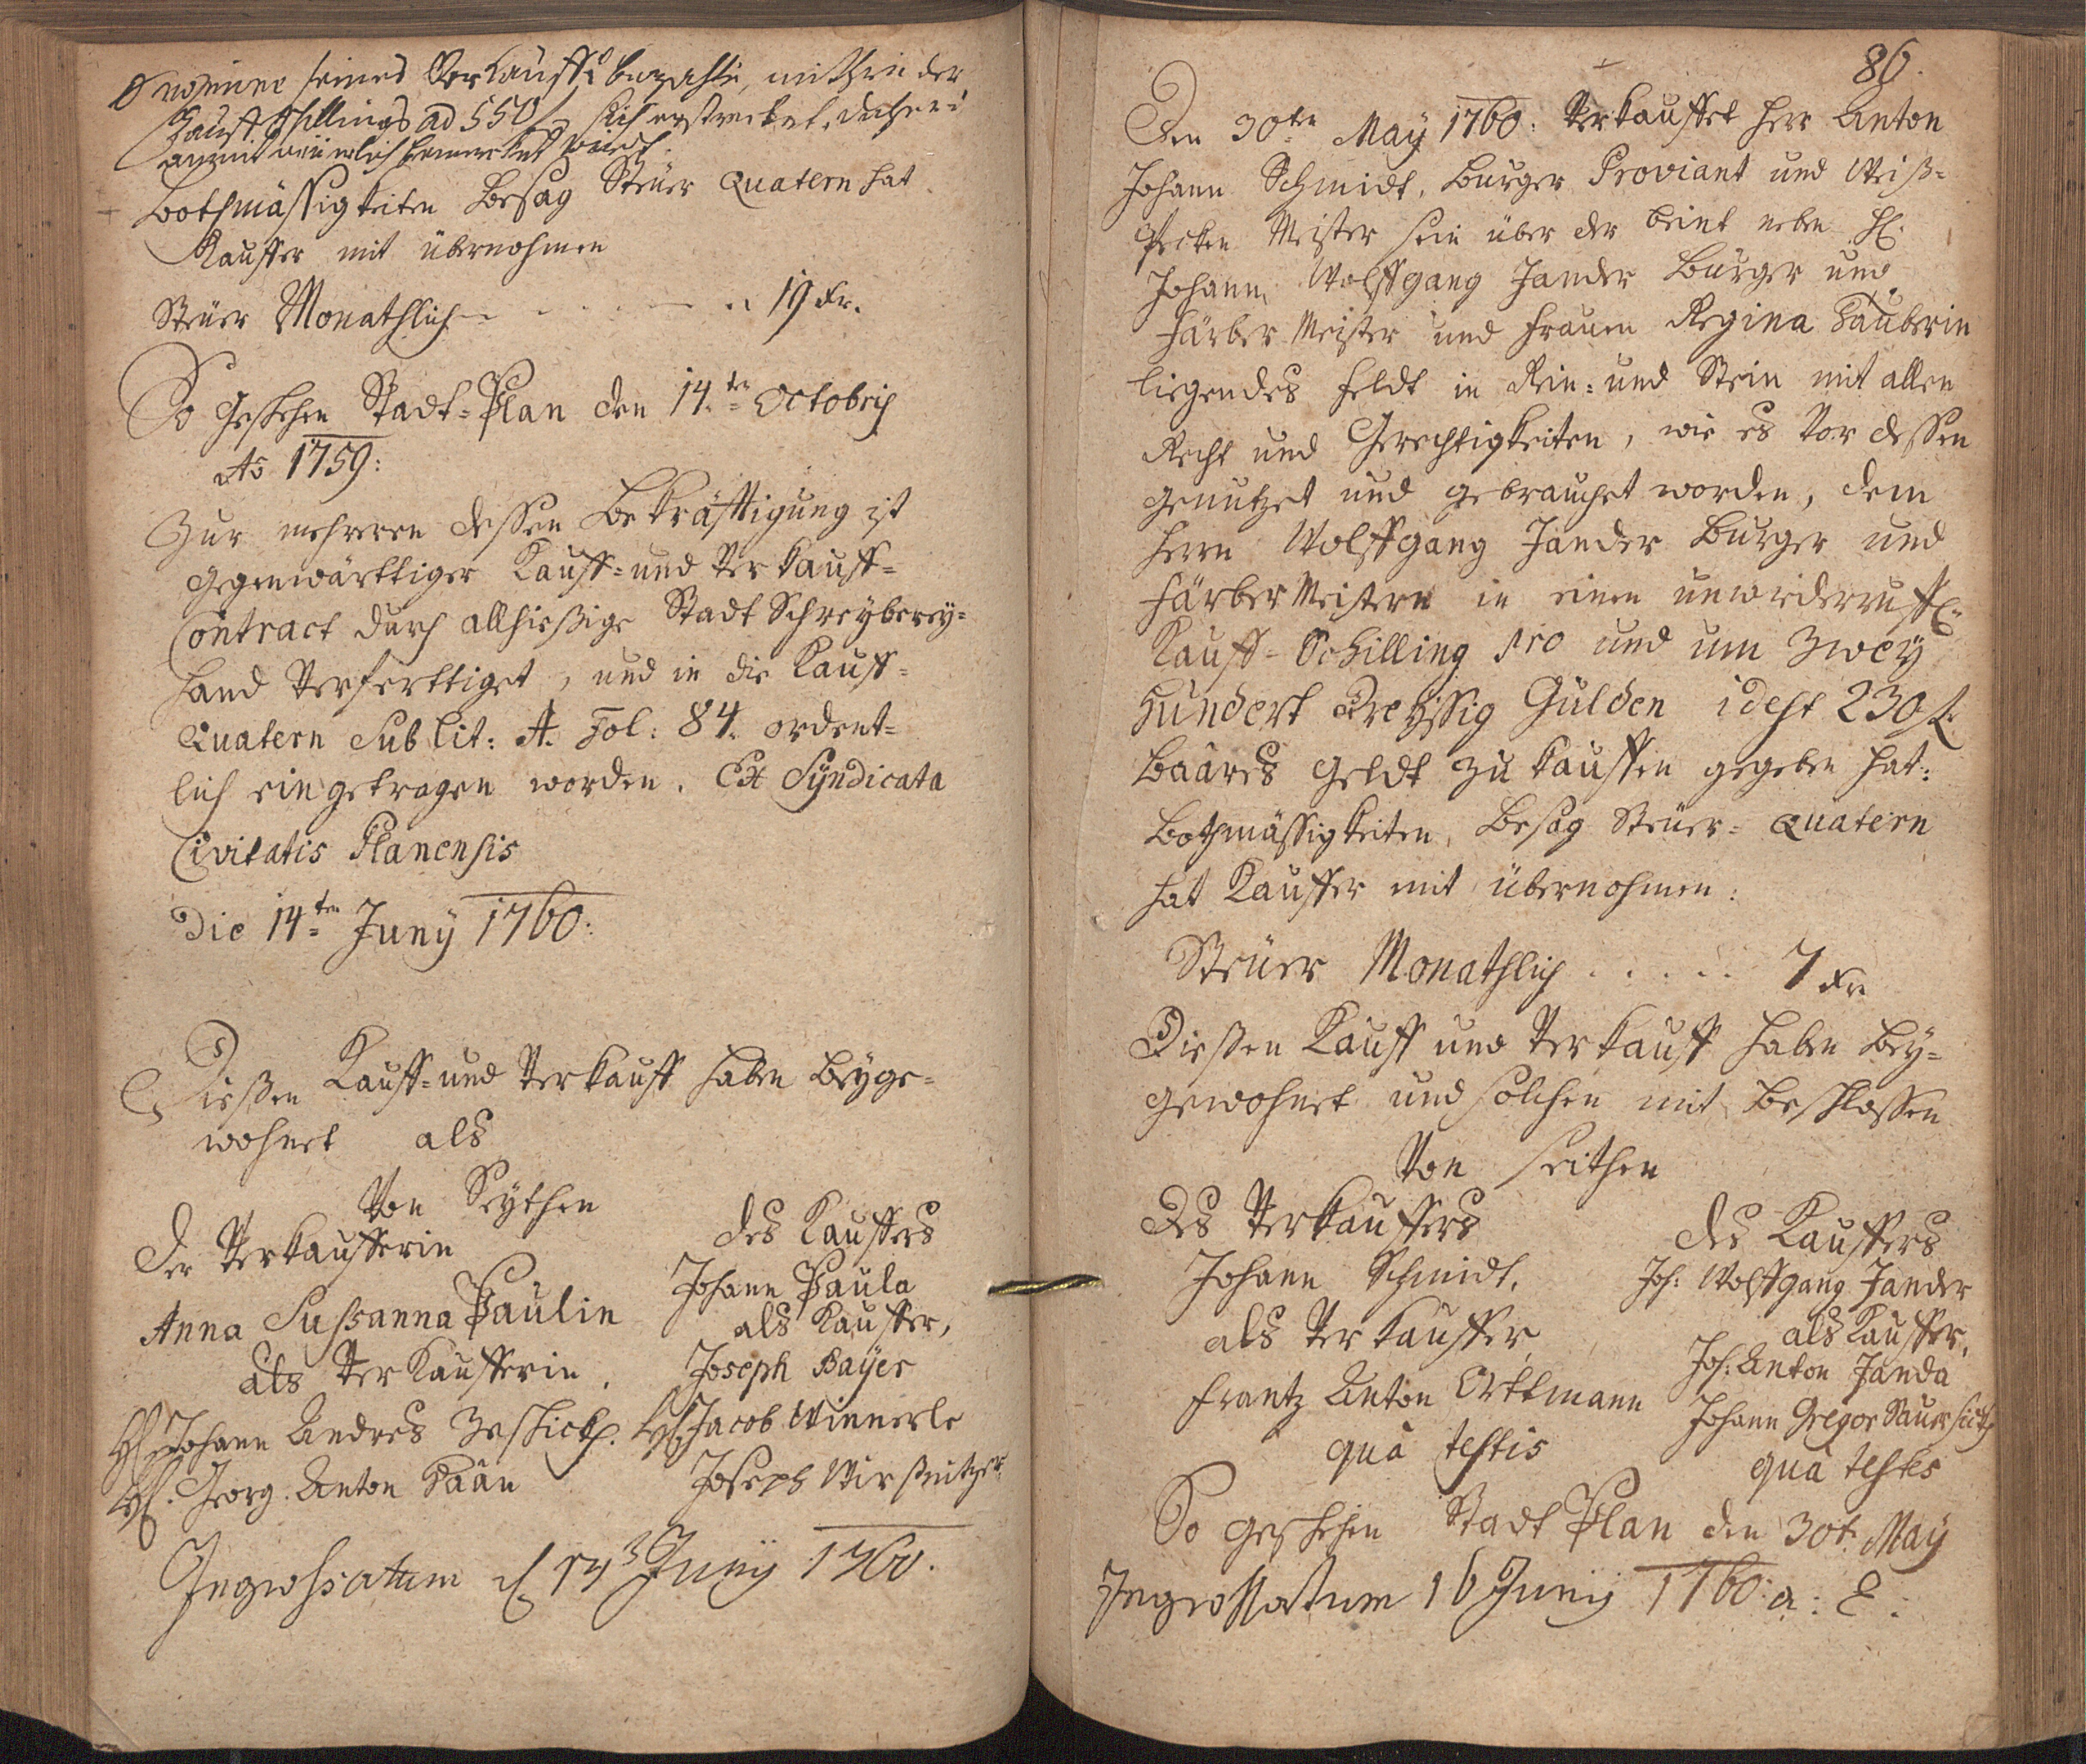 seines Verkauffs bezahlte, mithin der
Kauffschillings ad 550 f sich erstrecket, dahero
anmit bemercket wird.
Bothmässigkeiten Besag Steüer Quatern hat
Kauffer mit übernohmen
Steüer Monathlich - . . . . . 19 Kr.
So Geschehen Stadt-Plan den 14.ten Octobris
Ao 1759:
Zur mehreren dessen Bekräfftigung ist
gegenwärttiger Kauff- und Verkauff-
Contract durch allhießige Stadt Schreyberey-
Hand Verferttiget, und in die Kauff-
Quatern Sub Lit: A. Fol: 84. ordent-
lich eingetragen worden. Ex Syndicata
Civitatis Planensis
Die 14.ten Juny 1760:
Dießen Kauff- und Verkauff haben beyge-
wohnet als
Von Seythen
Der Verkaufferin
Anna Sussanna Paulin
als Verkaufferin.
H. Johann Andres
H. Georg Anton Paân
des Kauffers
Johann Paula
als Kauffer,
Joseph Bayer
H. Jacob Winnerle
Joseph
Ingrossatum d 14 Juny 1760.
86.
Den 30ten May 1760: Verkauffet Herr Anton
Johann Schmidt, Burger Proviant und Weiß-
Becken Meister sein über der beint neben H:
Johann Wolffgang Jander Burger und
Färber Meister und Frauen Regina Tauberin
liegendes Feldt in Rein- und Stein mit allen
Recht und Gerechtigkeiten, wie es Vor dessen
genutzet und gebrauchet worden, dem
Herrn Wolffgang Jander Burger und
Färber Meistern in einen unwiderruffl:
Kauff-Schilling pro und um Zwey
Hundert Dreyssig Gulden idest 230 f.
Baares Geldt zu kauffen gegeben hat:
Bothmässigkeiten, Besag Steüer-Quatern
hat Kauffer mit übernohmen:
Steüer Monathlich . . . . . 7 Kr
Dießen Kauff und Verkauff haben bey-
gewohnet und solchen mit beschlossen
Von seithen
Des Verkauffers
Johann Schmidt,
als Verkauffer
Frantz Anton Orttmann
quà testis
des Kauffers
Joh: Wolffgang Jander
als Kauffer,
Joh: Anton Janda
Johann Gregor
quà testes
So geschehen Stadt Plan den 30t. May
Ingrossatum 16 Juny 1760: a: E: